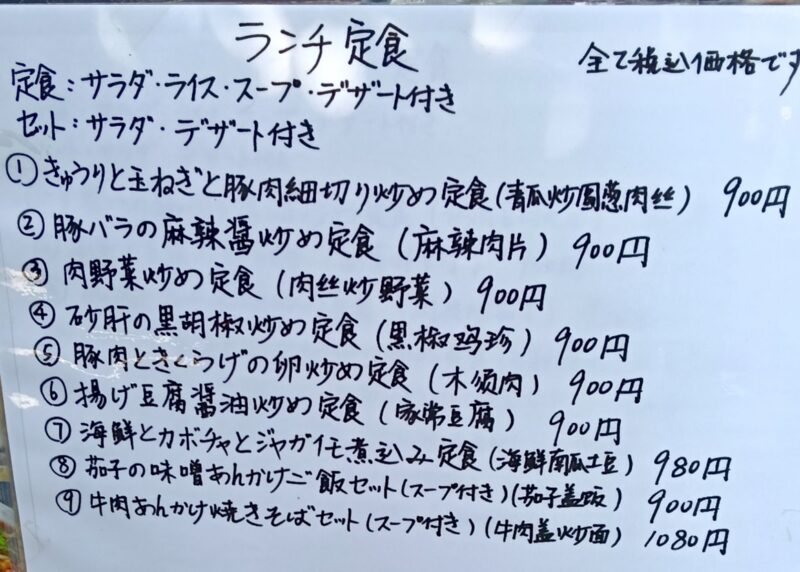 ランチ定食
全て税込価格です
定食：サラダ・ライス・スープ・デザート付き
セット：サラダ・デザート付き
①きゅうりと玉ねぎと豚肉細切り炒め定食（青瓜炒圓葱肉丝） 900円
②豚バラの麻辣醤炒め定食（麻辣肉片） 900円
③肉野菜炒め定食（肉丝炒野菜） 900円
④砂肝の黒胡椒炒め定食（黒椒鸡珍） 900円
⑤豚肉ときくらげの卵炒め定食（木须肉） 900円
⑥揚げ豆腐醤油炒め定食（家常豆腐） 900円
⑦海鮮とカボチャとジャガイモ煮込み定食（海鮮南瓜土豆） 980円
⑧茄子の味噌あんかけご飯セット（スープ付き）（茄子盖飯） 900円
⑨牛肉あんかけ焼きそばセット（スープ付き）（牛肉盖炒面） 1080円